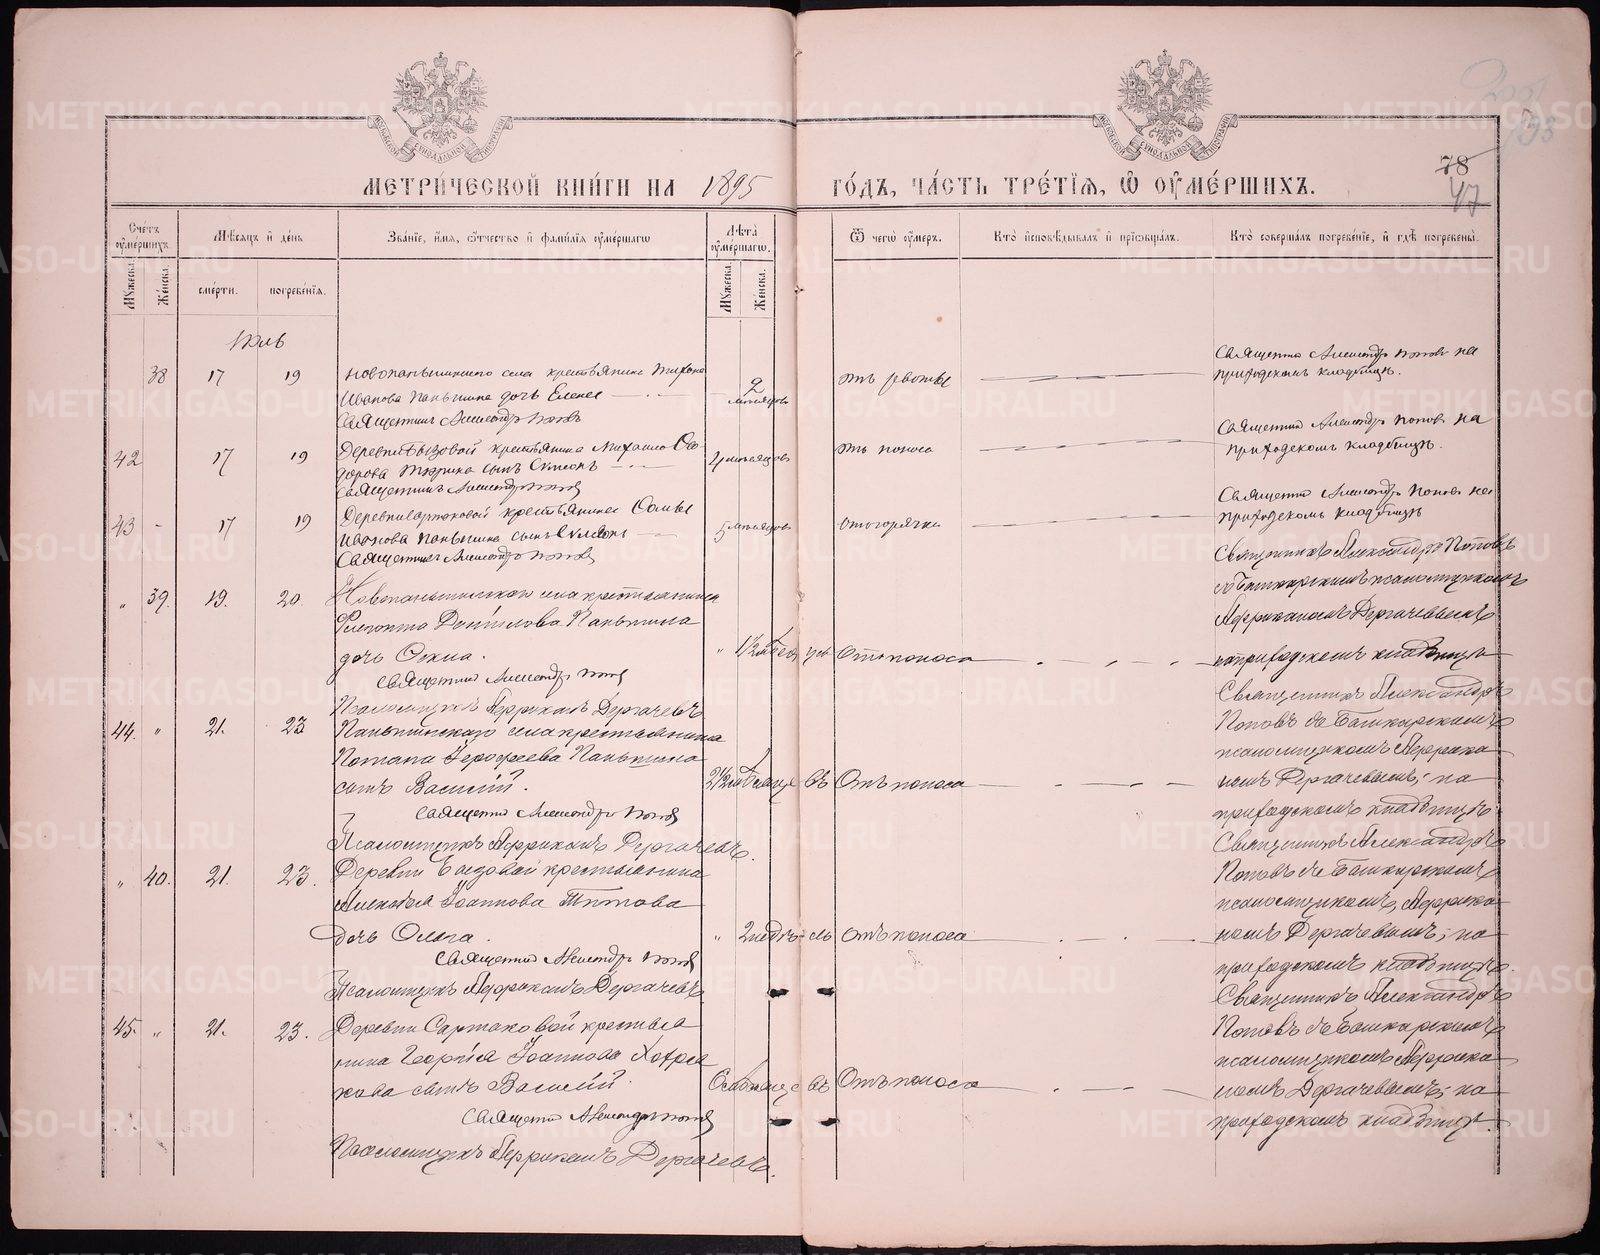 МЕТРИ́ЧЕСКОЙ КНИ́ГИ НА 1895 ГО́ДЪ, ЧА́СТЬ ТРЕ́ТІѦ, Ѡ ОУМЕ́РШИХЪ.
78
47
Счетъ оумершихъ.
Мѣсяцъ и день
Званіе, имя, отчество и фамилія оумершагѡ
Лѣта оумершагѡ.
Ѿ чегѡ оумеръ.
Кто исповѣдывалъ и пріобщалъ.
Кто совершалъ погребеніе, и гдѣ погребены.
Мужеска. Женска.
смерти. погребенія.
Мужеска. Женска.
Іюль
38 17 19 Новопаньшинскаго села крестьянина Тихона
Иванова Паньшина дочь Елена
Священникъ Александръ Поповъ
2 мѣсяцовъ
отъ рвоты
Священникъ Александръ Поповъ на
приходскомъ кладбищѣ.
42 17 19 крестьянина Михаила Ѳео-
дорова сынъ Симеонъ
Священникъ Александръ Поповъ
4 мѣсяцовъ
отъ поноса
Священникъ Александръ Поповъ на
приходскомъ кладбищѣ.
43 - 17 19 Деревни Сартаковой крестьянина Саввы
Иванова Паньшина сынъ Симеонъ
Священникъ Александръ Поповъ
5 мѣсяцовъ
отъ горячки
Священникъ Александръ Поповъ на
приходскомъ кладбищѣ
„ 39. 19. 20. Новопаньшинскаго села крестьянина
Филиппа Данилова Паньшина
дочь
Священникъ Александръ Поповъ
Псаломщикъ Африканъ Дергачевъ
„ 1½ мѣсяцевъ
Отъ поноса
Священникъ Александръ Поповъ
съ Башкарскимъ псаломщикомъ
Африканомъ Дергачевымъ
на приходскомъ кладбищѣ
44. „ 21. 23 Паньшинскаго села крестьянина
Потапа Іерофеева Паньшина
сынъ Василій.
Священникъ Александръ Поповъ
Псаломщикъ Африканъ Дергачевъ.
3½ мѣсяцевъ
Отъ поноса
Священникъ Александръ
Поповъ съ Башкарскимъ
псаломщикомъ Африка
номъ Дергачевымъ; на
приходскомъ кладбищѣ
„ 40. 21. 23. Деревни крестьянина
Алексѣя Іоаннова Титова
дочь Ольга.
Священникъ Александръ Поповъ
Псаломщикъ Африканъ Дергачевъ
„ 2 недѣль
Отъ поноса
Священникъ Александръ
Поповъ съ Башкарскимъ
псаломщикомъ Африка
номъ Дергачевымъ; на
приходскомъ кладбищѣ.
45. „ 21. 23. Деревни Сартаковой крестья
нина Георгія Іоаннова
сынъ Василій.
Священникъ Александръ Поповъ
Псаломщикъ Африканъ Дергачевъ.
6 мѣсяцевъ
Отъ поноса
Священникъ Александръ
Поповъ съ Башкарскимъ
псаломщикомъ Африка
номъ Дергачевымъ; на
приходскомъ кладбищѣ.
METRIKI.GASO-URAL.RU